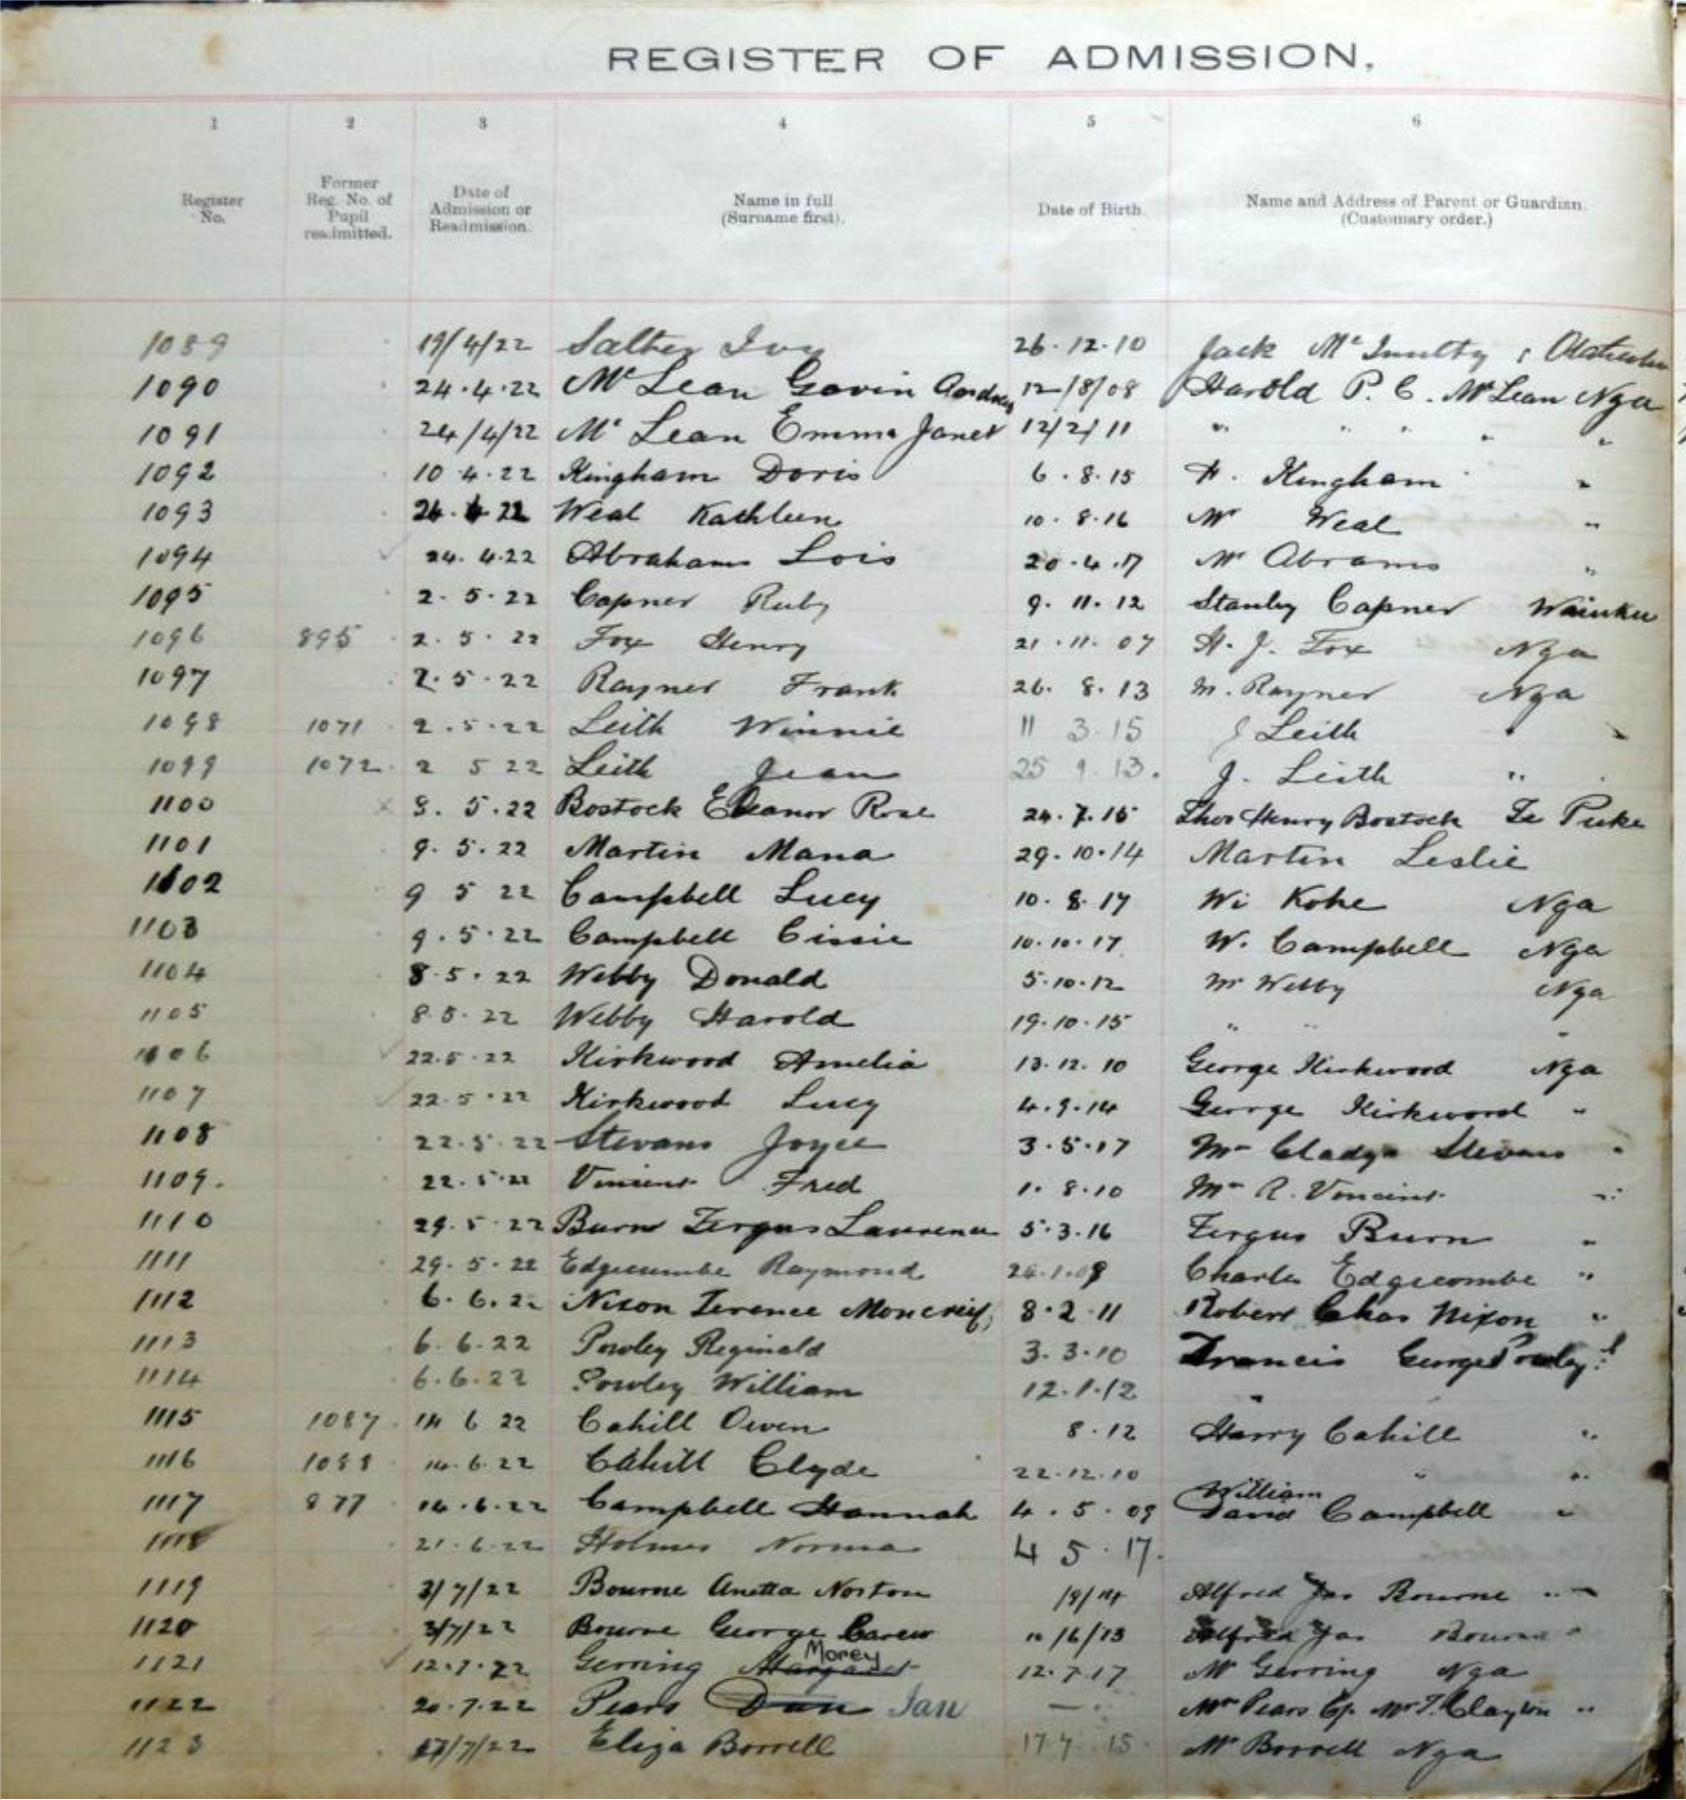 REGISTER OF ADMISSION.
1 2 3 4 5 6
Register No. Former Reg. No. of Pupil readmitted. Date of Admission or Readmission. Name in full (Surname first). Date of Birth. Name and Address of Parent or Guardian. (Customary order.)
1089 19/4/22 Salter Ivy 26.12.10 Jack
1090 24.4.22 McLean Gavin 12/8/08 Harold P. C. McLean Nga
1091 24/4/22 Mc Lean Emma Janet 12/2/11 " " " " "
1092 10.4.22 Kingham Doris 6.8.15 Kingham "
1093 Weal Kathleen 10.8.16 Mr Weal "
1094 24.4.22 Abrahams Lois 20.4.17 Mr Abrams "
1095 2.5.22 Capner Ruby 9.11.12 Stanley Capner Waiuku
1096 895 2.5.22 Fox Henry 21.11.07 H. J. Fox Nga
1097 2.5.22 Rayner Frank 26.8.13 M. Rayner Nga
1098 1071 2.5.22 Leith Winnie 11 3.15 J Leith "
1099 1072 2 5 22 Leith Jean 25 9.13. J. Leith "
1100 5.22 Bostock Eleanor Rose 24.7.15 Thos Henry Bostock Te Puke
1101 9.5.22 Martin Mana 29.10.14 Martin Leslie
1102 9 5 22 Campbell Lucy 10.8.17 Wi Koke Nga
1103 9.5.22 Campbell Cissie 10.10.17 W. Campbell Nga
1104 8.5.22 Webby Donald 5.10.12 Mr Webby Nga
1105 8.5.22 Webby Harold 19.10.15 " " "
1106 22.5.22 Kirkwood Amelia 13.12.10 George Kirkwood Nga
1107 22.5.22 Kirkwood Lucy 4.9.14 George Kirkwood "
1108 22.5.22 Stevans Joyce 3.5.17 Gladys Stevens "
1109. 22.5.22 Vincent Fred 1.8.10 Mr R. Vincent "
1110 29.5.22 Burn Fergus Laurence 5.3.16 Fergus Burn "
1111 29.5.22 Edgecumbe Raymond Charles Edgecombe "
1112 6.6.22 Nixon Terence Moncrieff 8.2.11 Robert Chas Nixon "
1113 6.6.22 Powley Reginald 3.3.10 Francis George Powley
1114 6.6.22 Powley William 12.1.12 "
1115 1087 14 6 22 Cahill Owen 8.12 Harry Cahill "
1116 1088 14.6.22 Cahill Clyde 22.12.10 " "
1117 877 14.6.22 Campbell Hannah 4.5.09 William David Campbell "
1118 21.6.22 Holmes Norma 4 5.17.
1119 3/7/22 Bourne Anetta Norton Alfred Jas Bourne "
1120 3/7/22 Bourne George Carew 10/6/13 Alfred Jas Bourne "
1121 12.7.22 Gerring Margaret Morey 12.7.17 Mr Gerring Nga
1122 20.7.22 Pears Dan Ian — Mr Pears C/o Mr T. Clayton "
1123 17/7/22 Eliza Borrell 17 7 15. Mr Borrell Nga